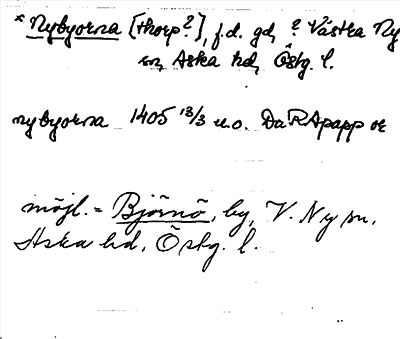 * Nybyorna [thorp?], f.d. gd, ? Västra Ny
sn, Aska hd, Östg. l.
nybyorna 1405 18/3 u.o. Da RApapp or
möjl. = Björnö, by, V. Ny sn,
Aska hd, Östg. l.